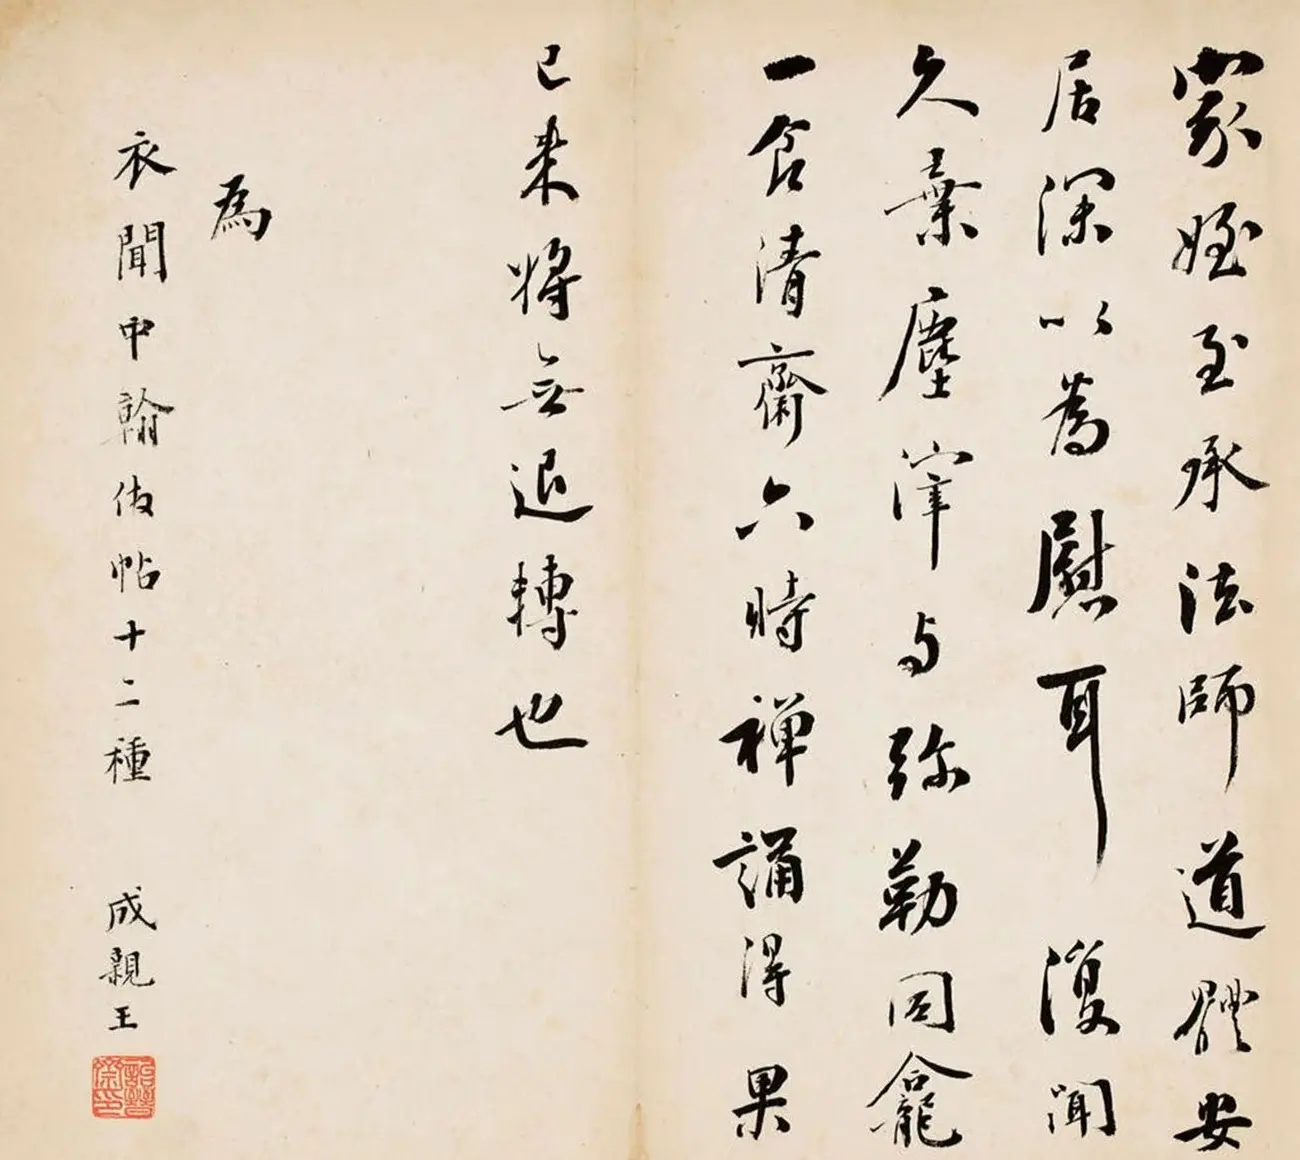 家姪至承法師道體安
居深以為慰耳復聞
久棄塵滓与弥勒同龕
一食清齋六時禅誦得果
已来將無退轉也
為
衣聞中翰倣帖十二種 成親王
詒晉齋印